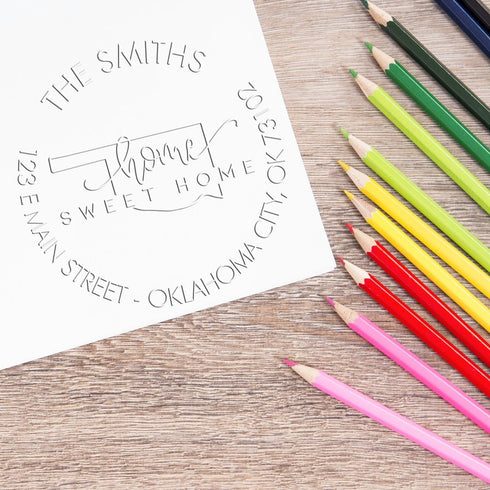 THE SMITHS
home
SWEET HOME
123 E MAIN STREET - OKLAHOMA CITY, OK 73102